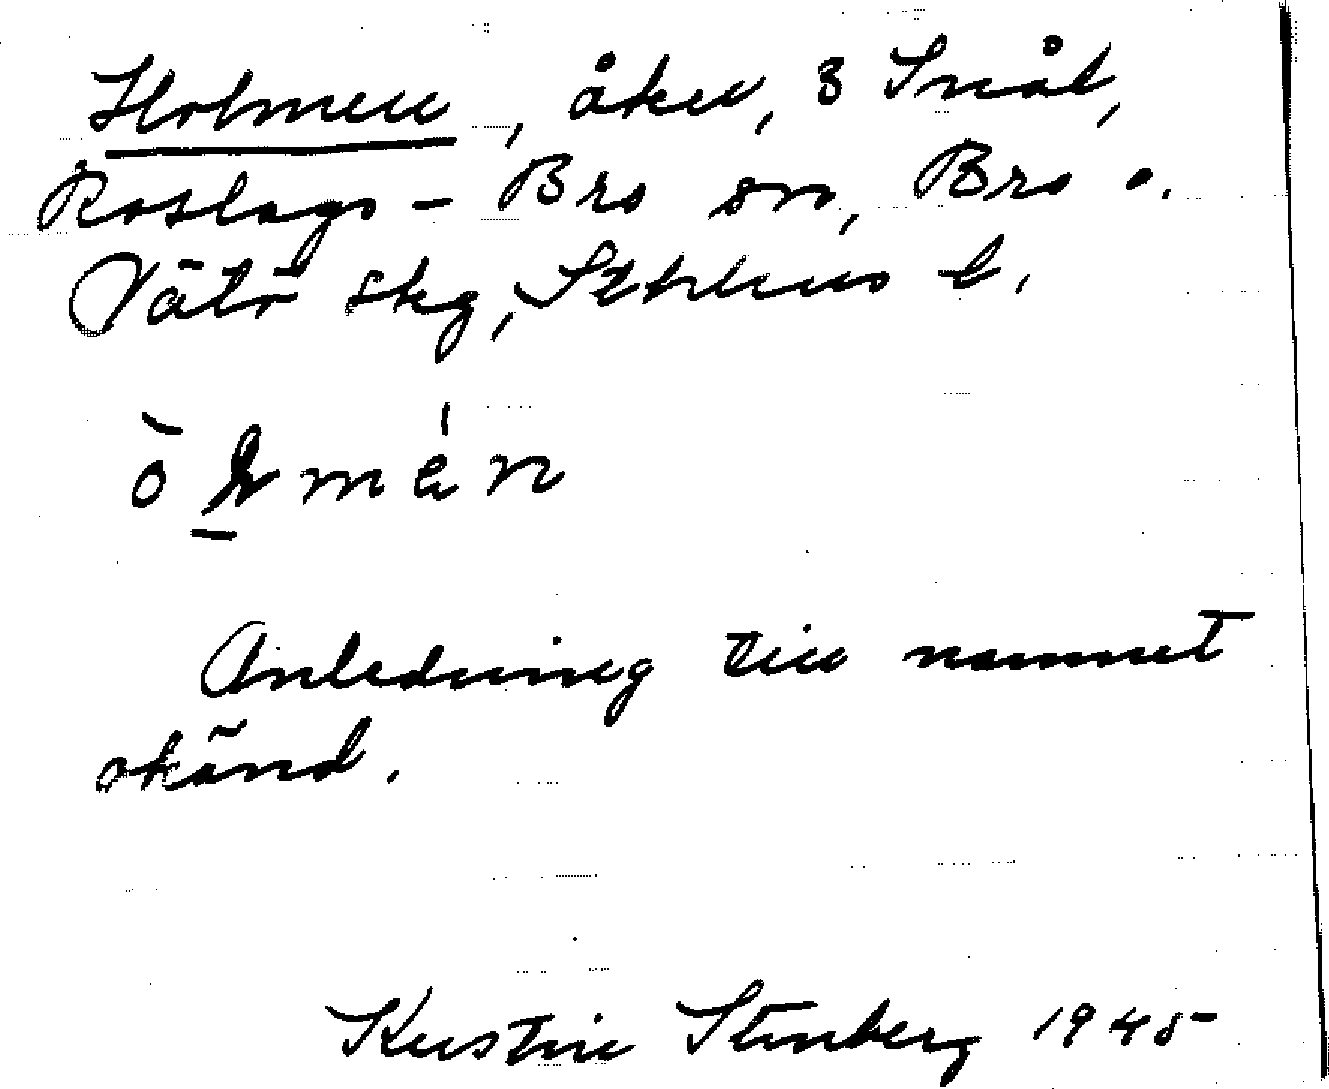 Holmen, åker, 3 Snåt,
Roslags-Bro sn, Bro o.
Vätö skg, Sthlms l.
Anledning till namnet
okänd.
Kerstin Stenberg 1945